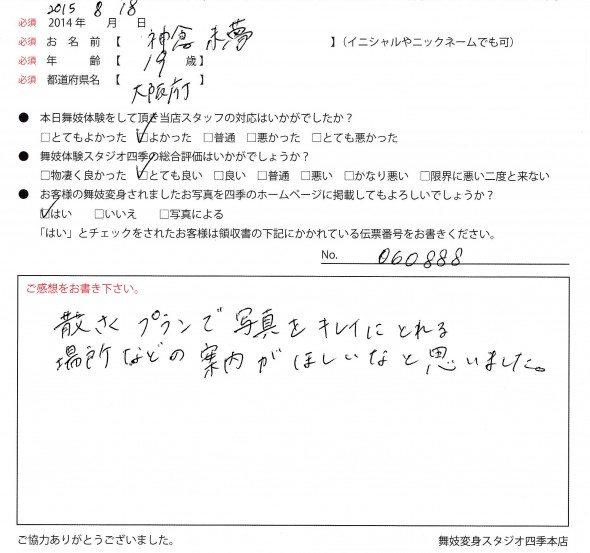 2015 8 18
必須 2014年 月 日
必須 お名前【 神倉 未夢 】(イニシャルやニックネームでも可)
必須 年 齢【 19 歳】
必須 都道府県名【 大阪府 】
● 本日舞妓体験をして頂き当店スタッフの対応はいかがでしたか?
□とてもよかった ☑よかった □普通 □悪かった □とても悪かった
● 舞妓体験スタジオ四季の総合評価はいかがでしょうか?
□物凄く良かった ☑とても良い □良い □普通 □悪い □かなり悪い □限界に悪い二度と来ない
● お客様の舞妓変身されましたお写真を四季のホームページに掲載してもよろしいでしょうか?
☑はい □いいえ □写真による
「はい」とチェックをされたお客様は領収書の下記にかかれている伝票番号をお書きください。
No. 060888
ご感想をお書き下さい。
散さく プランで 写真を キレイに とれる
場所などの 案内が ほしいなと 思いました。
ご協力ありがとうございました。 舞妓変身スタジオ四季本店